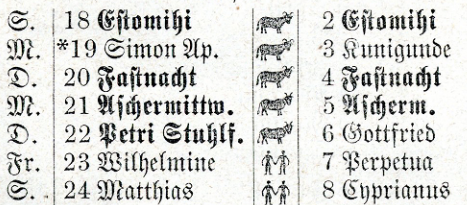 S. 18 Eſtomihi 2 Eſtomihi
M. *19 Simon Ap. 3 Kunigunde
D. 20 Faſtnacht 4 Faſtnacht
M. 21 Aſchermittw. 5 Aſcherm.
D. 22 Petri Stuhlf. 6 Gottfried
Fr. 23 Wilhelmine 7 Perpetua
S. 24 Matthias 8 Cyprianus